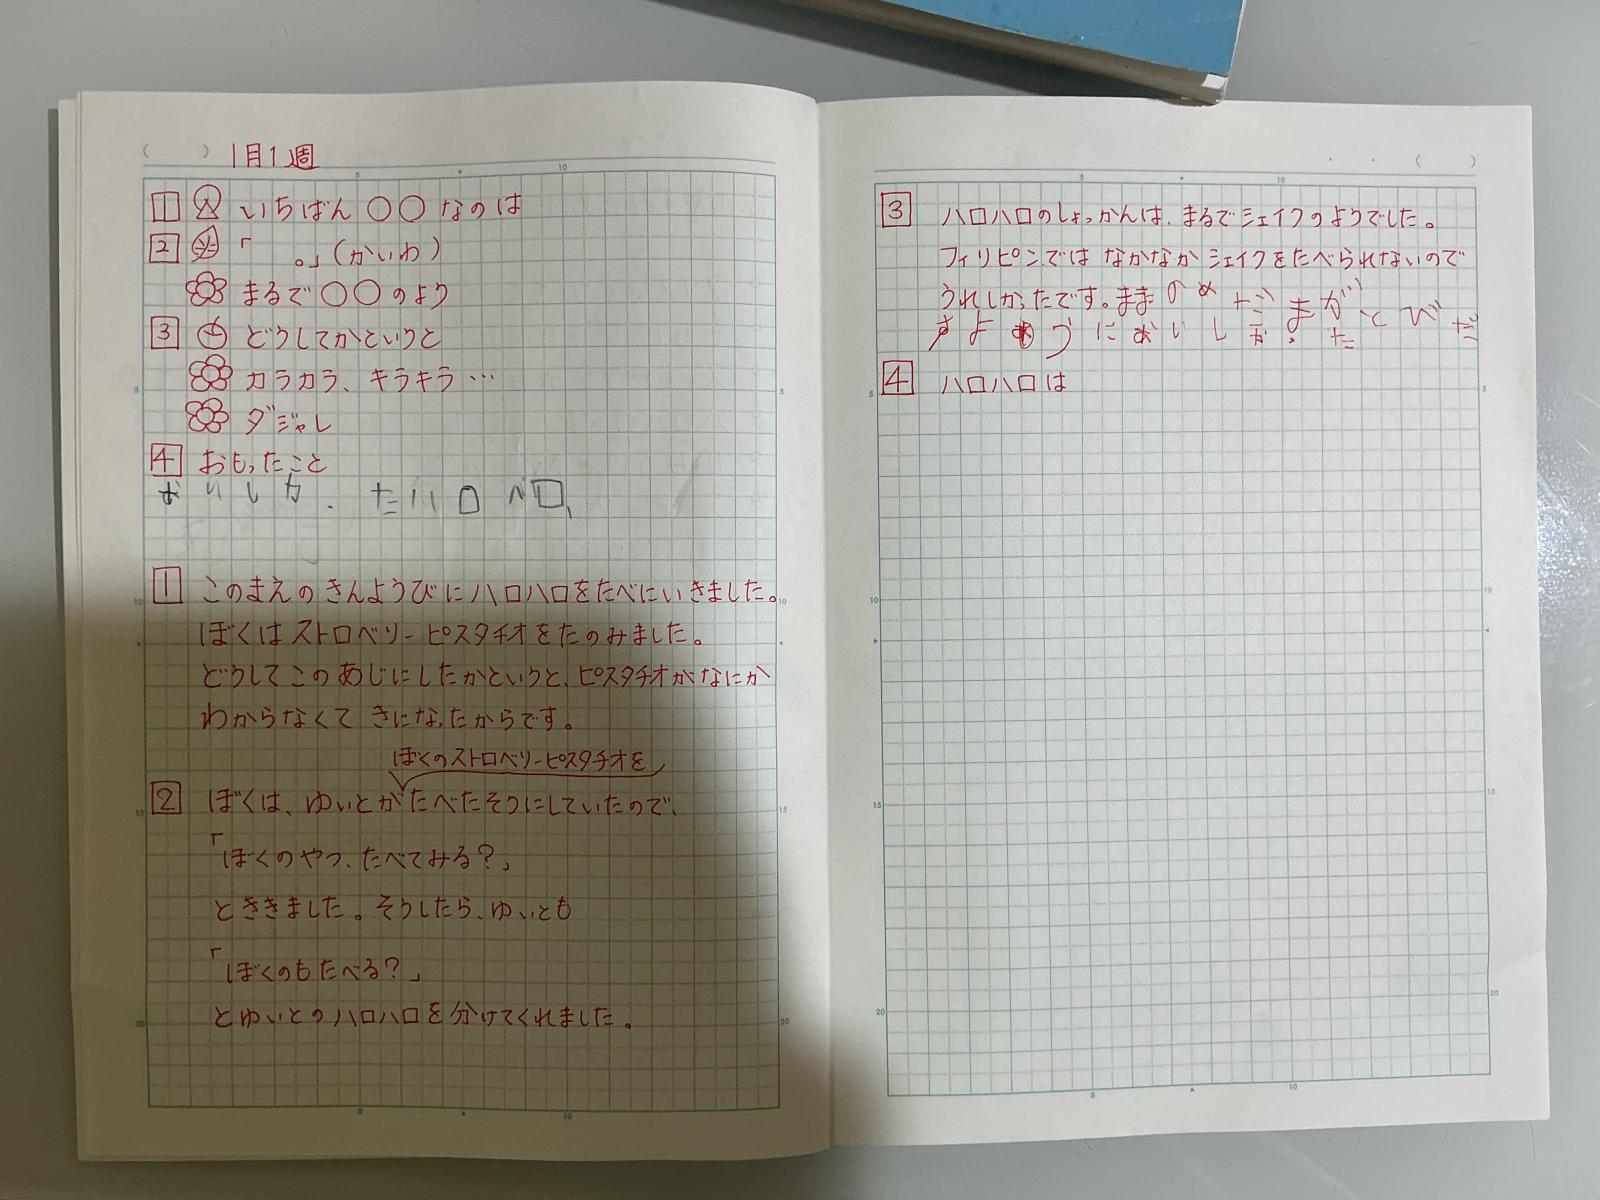 1月1週
1 あ いちばん〇〇なのは
2 「 。」(かいわ)
まるで〇〇のよう
3 どうしてかというと
カラカラ、キラキラ…
ダジャレ
4 おもったこと
おいしかったハロベロ、
1 このまえのきんようびにハロハロをたべにいきました。
ぼくはストロベリーピスタチオをたのみました。
どうしてこのあじにしたかというと、ピスタチオがなにか
わからなくてきになったからです。
ぼくのストロベリーピスタチオを
2 ぼくは、ゆいとがたべたそうにしていたので、
「ぼくのやつ、たべてみる?」
とききました。そうしたら、ゆいとも
「ぼくのもたべる?」
とゆいとのハロハロを分けてくれました。
3 ハロハロのしょっかんは、まるでシェイクのようでした。
フィリピンではなかなかシェイクをたべられないので
うれしかったです。ままのめだまがとびだ
すようにおいしかった
4 ハロハロは